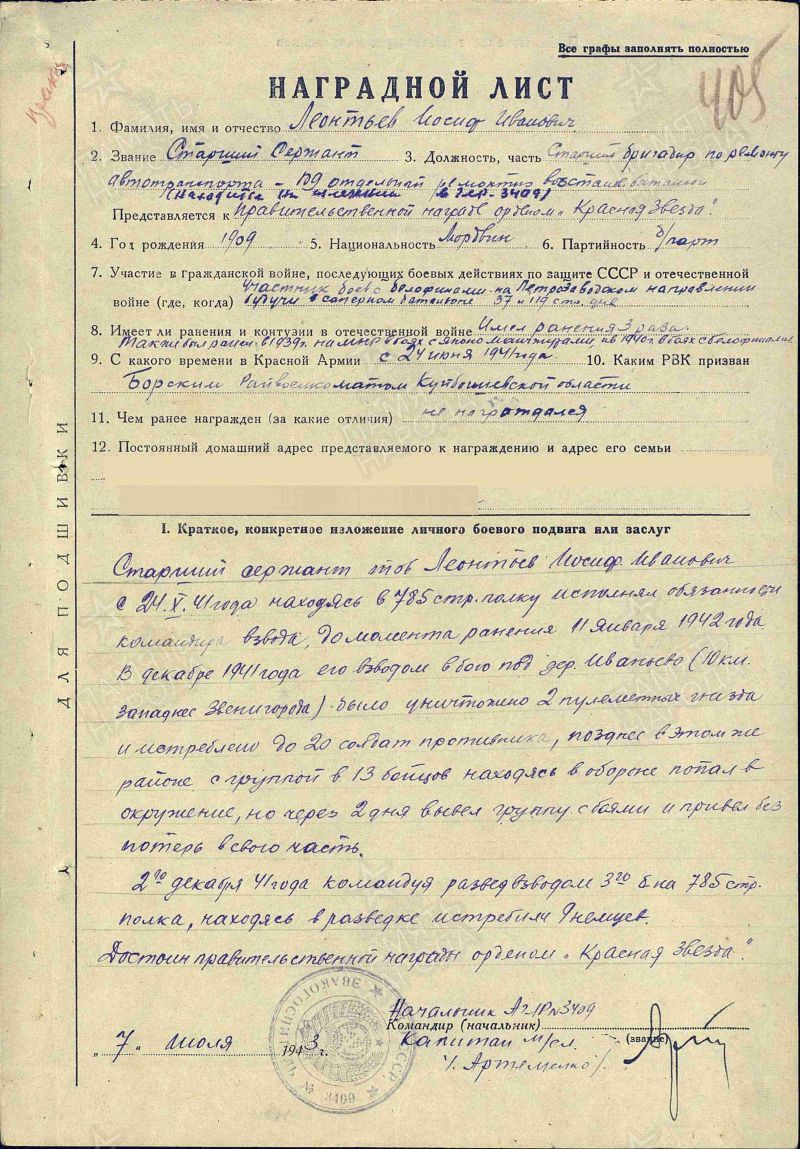 Все графы заполнять полностью
405
НАГРАДНОЙ ЛИСТ
1. Фамилия, имя и отчество Леонтьев Иосиф Иванович
2. Звание Старший Сержант 3. Должность, часть Старший бригадир по ремонту
автотранспорта - 109 отдельный ремонтно восстан. баталион
(находится на излечении в ЭГ 3409)
Представляется к Правительственной награде орденом „Красная Звезда".
4. Год рождения 1909 5. Национальность Мордвин 6. Партийность б/парт
7. Участие в гражданской войне, последующих боевых действиях по защите СССР и отечественной
Участник боев с белофинами на Петрозаводском направлении
войне (где, когда) будучи в саперном батальоне 37 и 119 стр. див
8. Имеет ли ранения и контузии в отечественной войне Имел ранения 3 раза.
Также был ранен в 1939г. на в боях с Японо Манчжурами, и в 1940г. в боях с белофинами
9. С какого времени в Красной Армии с 24 июня 1941 года. 10. Каким РВК призван
Борским Райвоенкоматом Куйбышевской области
11. Чем ранее награжден (за какие отличия) не награждался
12. Постоянный домашний адрес представляемого к награждению и адрес его семьи
ДЛЯ ПОДШИВКИ
I. Краткое, конкретное изложение личного боевого подвига или заслуг
Старший сержант тов Леонтьев Иосиф Иванович
с 24.X.41 года находясь в 785 стр. полку исполнял обязанности
командира взвода, до момента ранения 11 Января 1942 года.
В декабре 1941 года его взводом в бою под дер. Иваньево (10 км.
западнее Звенигорода) было уничтожено 2 пулеметных гнезда
и истреблено до 20 солдат противника, позднее в этом же
районе с группой в 13 бойцов находясь в обороне попал в
окружение, но через 2 дня вывел группу с боями и привел без
потерь в свою часть.
2го декабря 41 года командуя развед взводом 3го б-на 785 стр.
полка, находясь в разведке истребили 7 немцев.
Достоин правительственной награды орденом „Красная Звезда".
Начальник №3409
Командир (начальник)
„ 7. " Июля 1943 г. Капитан м/сл. (звание)
/. Артеменко /.
ЭВАКОГОСПИТАЛЬ СССР № 3409